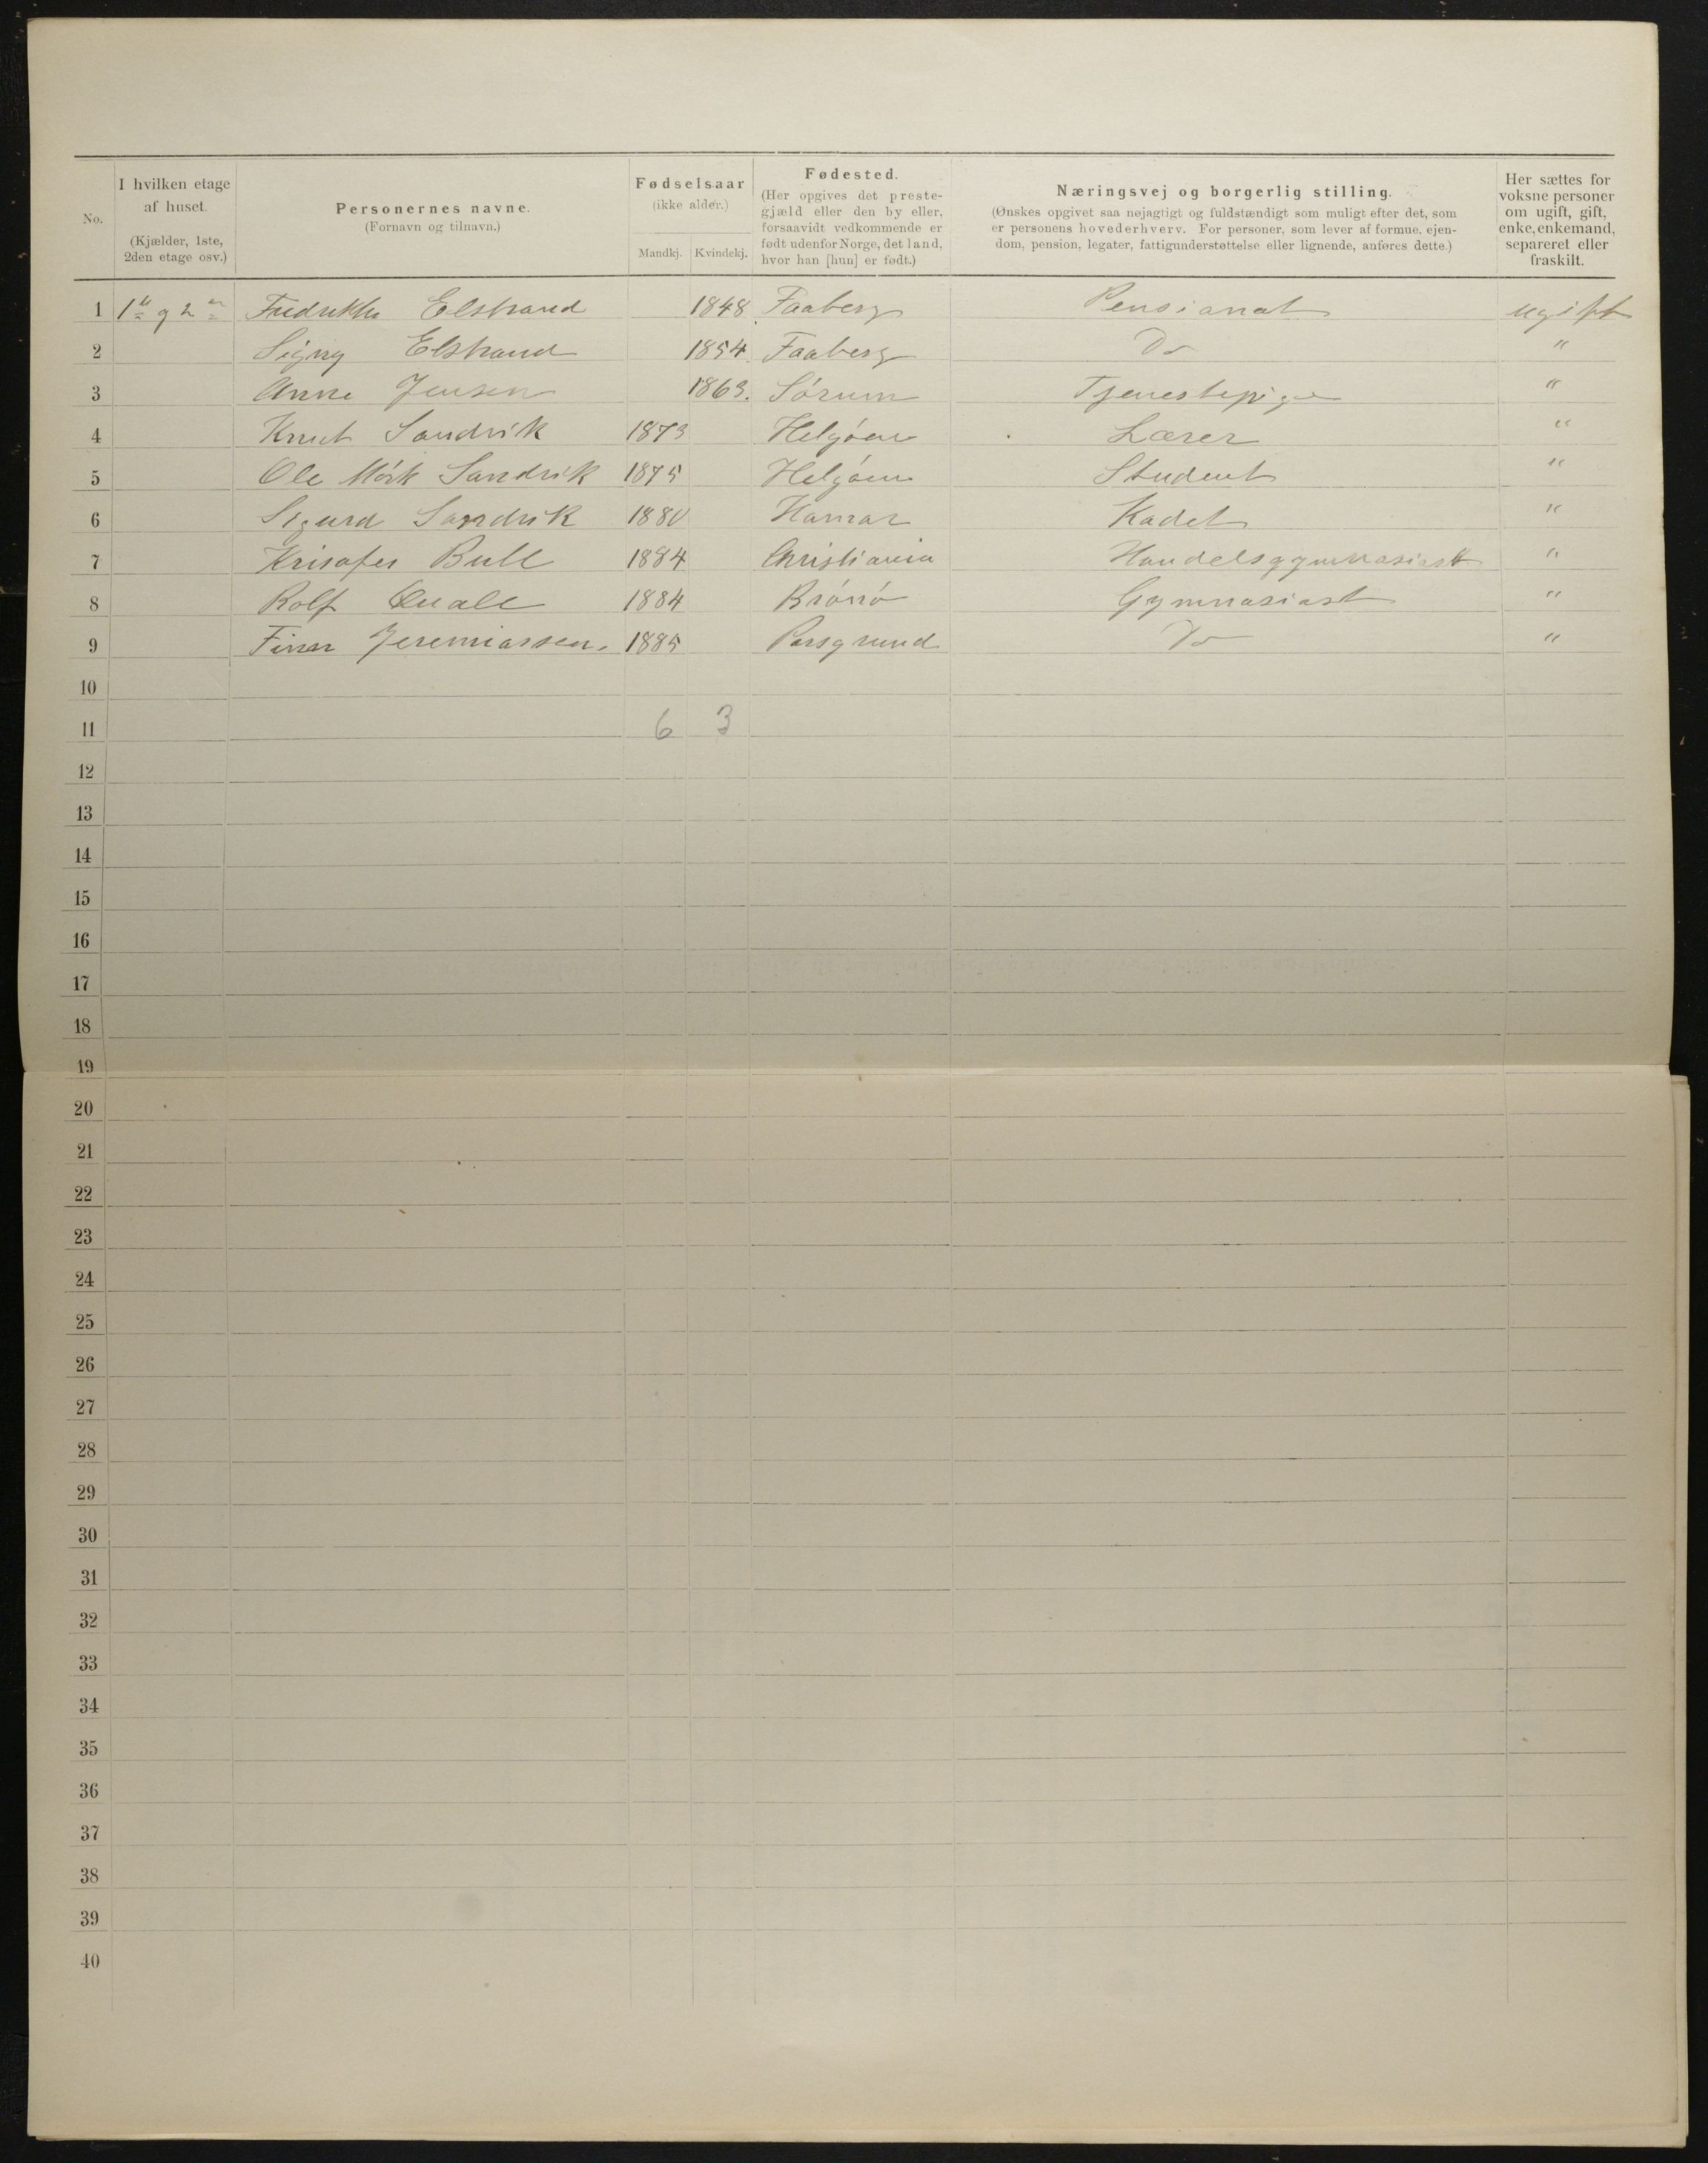 No.
I hvilken etage af huset.
(Kjælder, 1ste, 2den etage osv.)
Personernes navne.
(Fornavn og tilnavn.)
Fødselsaar
(ikke alder.)
Mandkj. Kvindekj.
Fødested.
(Her opgives det prestegjæld eller den by eller, forsaavidt vedkommende er født udenfor Norge, det land, hvor han [hun] er født.)
Næringsvej og borgerlig stilling.
(Ønskes opgivet saa nøjagtigt og fuldstændigt som muligt efter det, som er personens hovederhverv. For personer, som lever af formue, ejendom, pension, legater, fattigunderstøttelse eller lignende, anføres dette.)
Her sættes for voksne personer om ugift, gift, enke, enkemand, separeret eller fraskilt.
1 1ste og 2en Fredrikke Elstrand 1848 Faaberg Pensionat ugift
2 Signy Elstrand 1854. Faaberg Do "
3 Anne Jensen 1863. Sórum Tjenestepige "
4 Knut Sandvik 1873 Helgóen Lærer "
5 Ole Mórk Sandvik 1875 Helgóen Student "
6 Sigurd Sandvik 1880 Hamar Kadet "
7 Krisofer Bull 1884 Christiania Handelsgymnasiast "
8 Rolf Quale 1884 Brónó Gymnasiast "
9 Finn Jeremiassen. 1885 Porsgrund Do "
10
11 6 3
12
13
14
15
16
17
18
19
20
21
22
23
24
25
26
27
28
29
30
31
32
33
34
35
36
37
38
39
40